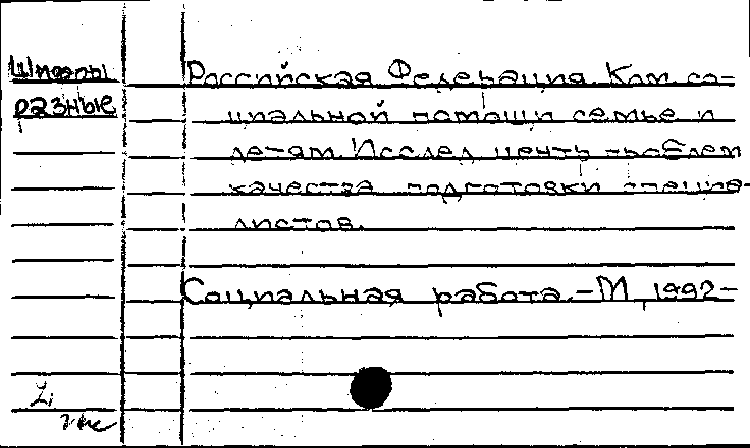 Шифры
разные
Российская Федерация. Ком. со-
циальной помощи семье и
детям. Исслед. центр проблем
качества подготовки специа-
листов.
Социальная работа. - М., 1992-